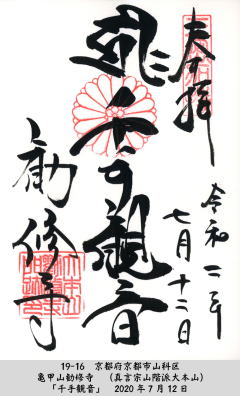 奉拝
令和二年
七月十二日
千手観音
勧修寺
19-16 京都府京都市山科区
亀甲山勧修寺 (真言宗山階派大本山)
「千手観音」 2020年7月12日